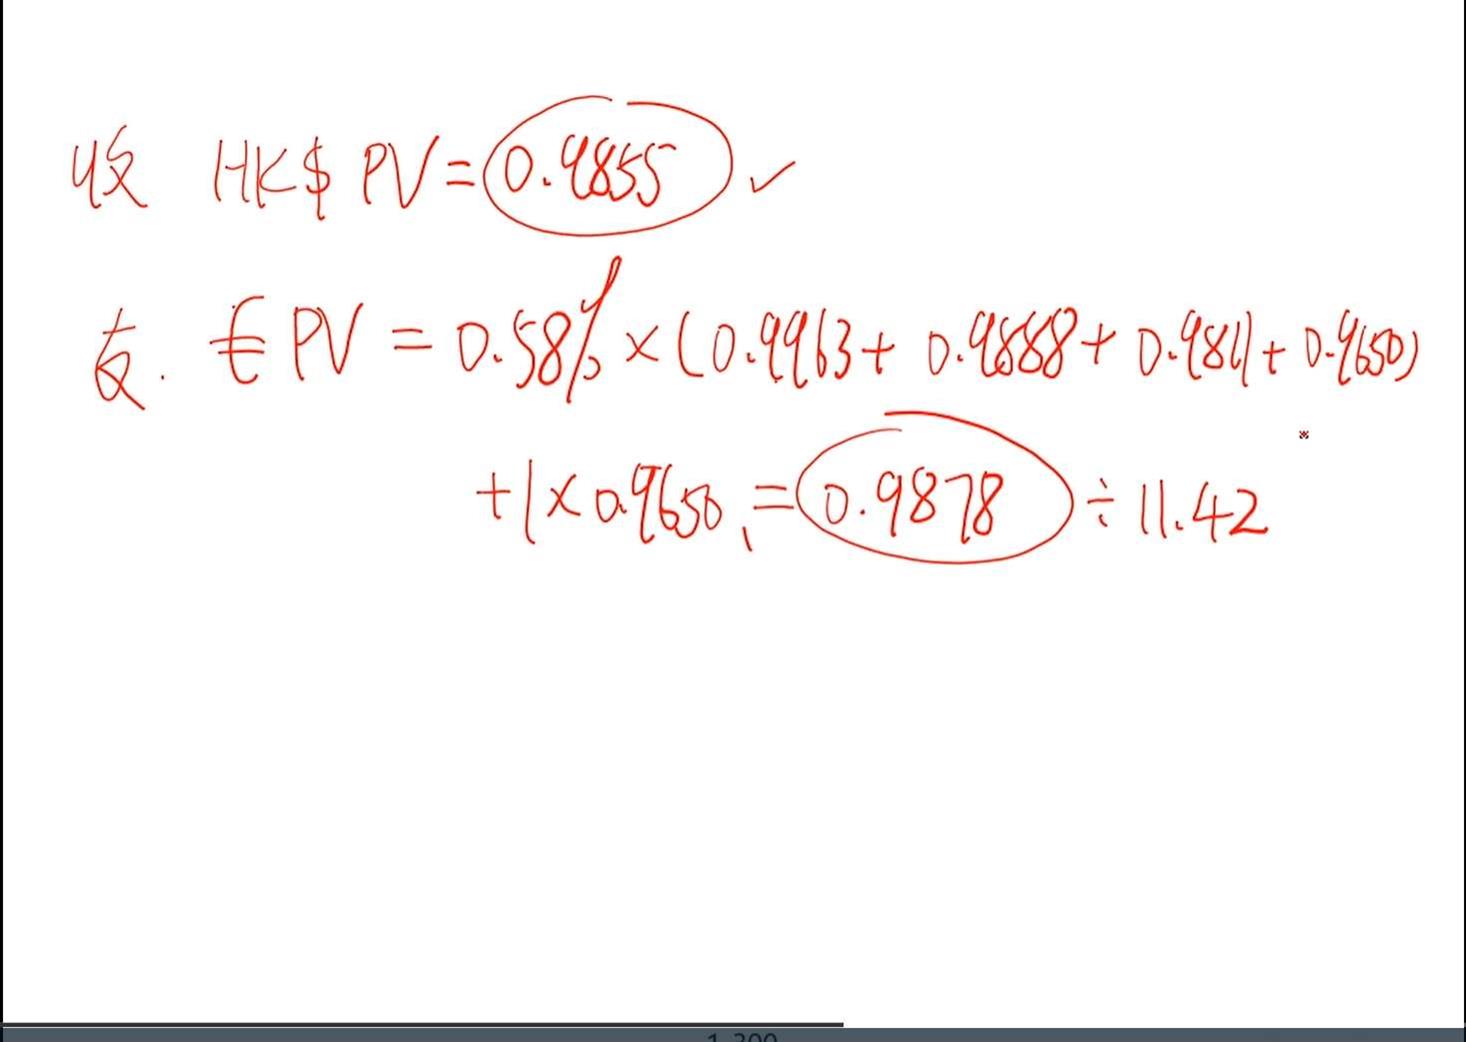 收 HK$ PV = 0.9855 ✓
支. € PV = 0.58% × (0.9963 + 0.9888 + 0.9811 + 0.9650)
+ 1 × 0.9650 = 0.9878 ÷ 11.42